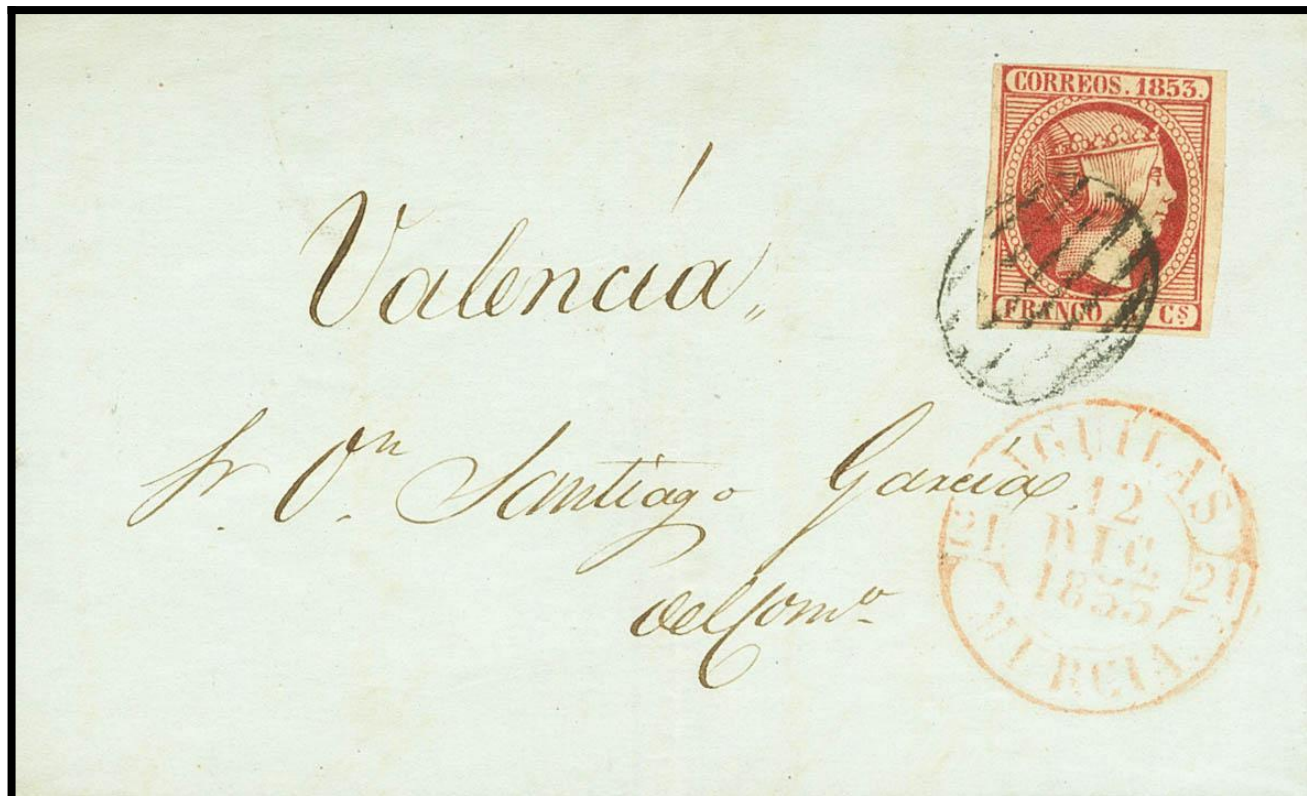 CORREOS. 1853.
FRANCO Cs
Valencia
Sr. Dn. Santiago García
del Como.
AGUILAS
12
DIC.
1853
21 21
MURCIA.